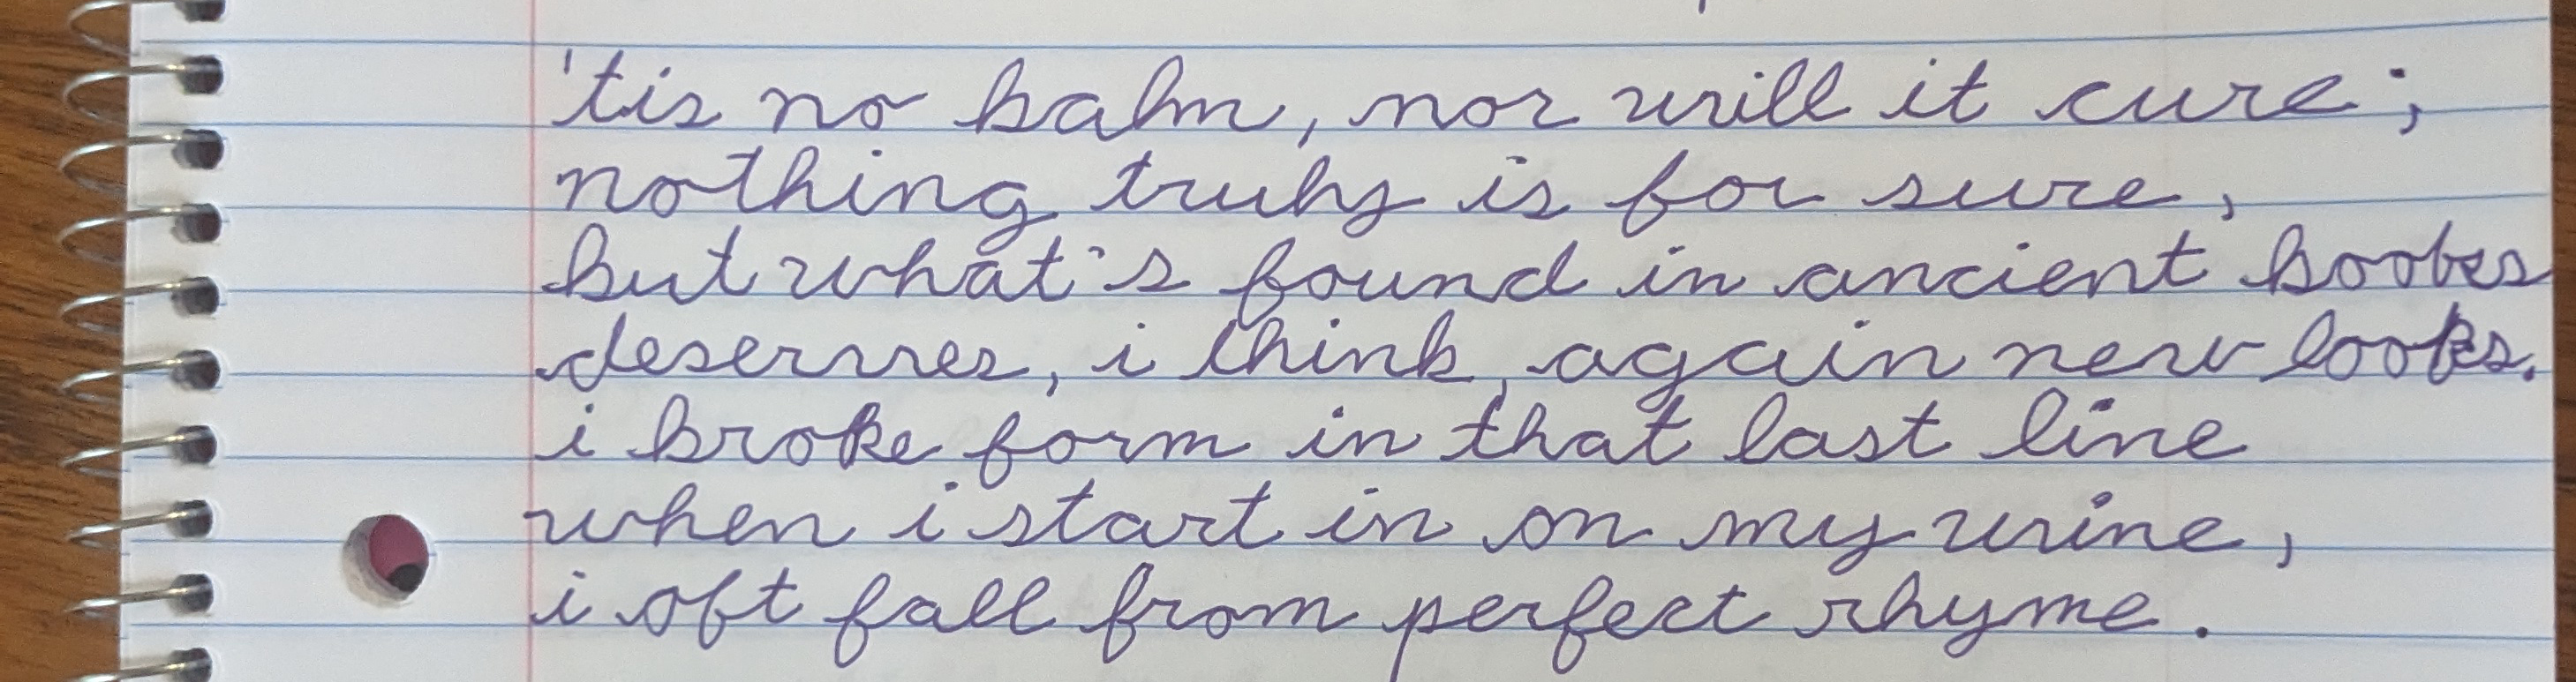 'tis no balm, nor will it cure;
nothing truly is for sure,
but what's found in ancient books
deserves, i think, again new looks.
i broke form in that last line
when i start in on my wine,
i oft fall from perfect rhyme.